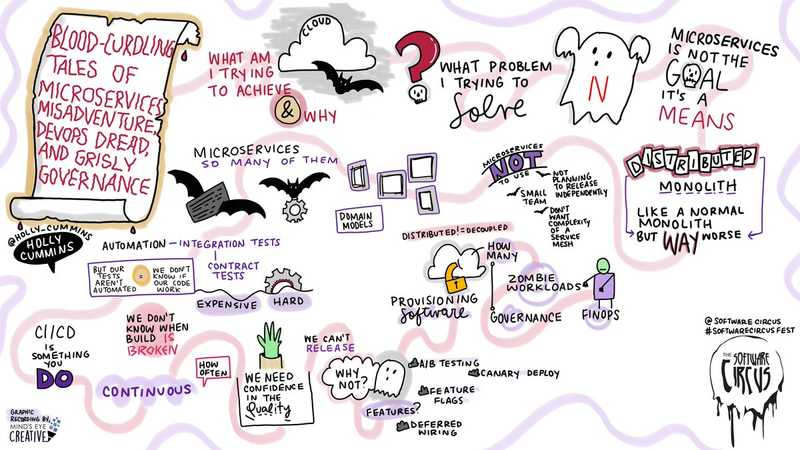 BLOOD-CURDLING
TALES OF
MICROSERVICES
MISADVENTURE,
DEVOPS DREAD,
AND GRISLY
GOVERNANCE
@HOLLY_CUMMINS
HOLLY
CUMMINS
WHAT AM
I TRYING
TO ACHIEVE
& WHY
CLOUD
?
WHAT PROBLEM
I TRYING TO
Solve
N
MICROSERVICES
IS NOT THE
GOAL
IT'S A
MEANS
MICROSERVICES
SO MANY OF THEM
DOMAIN
MODELS
MICROSERVICES
NOT
TO USE
SMALL
TEAM
NOT
PLANNING
TO RELEASE
INDEPENDENTLY
DON'T
WANT
COMPLEXITY
OF A
SERVICE
MESH
DISTRIBUTED
MONOLITH
LIKE A NORMAL
MONOLITH
BUT WAY WORSE
AUTOMATION — INTEGRATION TESTS
CONTRACT
TESTS
BUT OUR
TESTS
AREN'T
AUTOMATED
WE DON'T
KNOW IF
OUR CODE
WORK
EXPENSIVE
HARD
DISTRIBUTED != DECOUPLED
PROVISIONING
Software
HOW
MANY
GOVERNANCE
ZOMBIE
WORKLOADS
FINOPS
CI/CD
IS
SOMETHING
YOU
DO
WE DON'T
KNOW WHEN
BUILD IS
BROKEN
CONTINUOUS
HOW
OFTEN
WE NEED
CONFIDENCE
IN THE
Quality
WE CAN'T
RELEASE
WHY
NOT?
FEATURES?
A/B TESTING
CANARY DEPLOY
FEATURE
FLAGS
DEFERRED
WIRING
@SOFTWARECIRCUS
#SOFTWARECIRCUSFEST
THE
SOFTWARE
CIRCUS
GRAPHIC
RECORDING BY
MIND'S EYE
CREATIVE